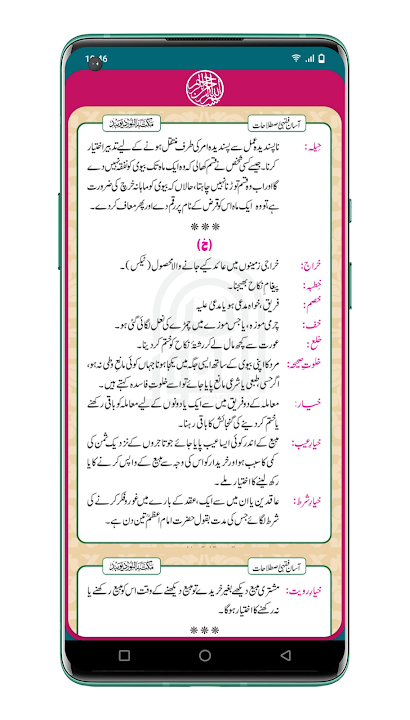 10:46
آسان فقہی اصطلاحات
حیلہ: ناپسندیدہ عمل سے پسندیدہ امر کی طرف منتقل ہونے کے لیے تدبیر اختیار
کرنا۔ جیسے کسی شخص نے قسم کھالی کہ وہ ایک ماہ تک بیوی کو نفقہ نہیں دے
گا اور اب وہ قسم توڑنا نہیں چاہتا، حالاں کہ بیوی کو ماہانہ خرچ کی ضرورت
ہے تو وہ ایک ماہ اس کو قرض کے نام پر رقم دے اور پھر معاف کردے۔
***
(خ)
خراج: خراجی زمینوں میں عائد کیے جانے والا محصول (ٹیکس)۔
خطبہ: پیغام نکاح بھیجنا۔
خصم: فریق، خواہ مدعی ہو یا مدعی علیہ
خف: چرمی موزہ، یا جس موزے میں چمڑے کی نعل لگائی گئی ہو۔
خلع: عورت سے کچھ مال لے کر رشتۂ نکاح کو ختم کردینا۔
خلوت صحیحہ: مرد کا اپنی بیوی کے ساتھ ایسی جگہ میں یکجا ہونا جہاں کوئی مانع وطی نہ ہو،
اگر حسی، طبعی یا شرعی مانع پایا جائے تو اسے خلوت فاسدہ کہتے ہیں۔
خیار: معاملہ کے دو فریق میں سے ایک یا دونوں کے لیے معاملہ کو باقی رکھنے
یا ختم کردینے کی گنجائش کا باقی رہنا۔
خیار عیب: مبیع کے اندر کوئی ایسا عیب پایا جائے جو تاجروں کے نزدیک ثمن کی
کمی کا سبب ہو اور خریدار کو اس کی وجہ سے مبیع کے واپس کرنے کا یا
رکھ لینے کا اختیار ملے۔
خیار شرط: عاقدین یا ان میں سے ایک، عقد کے بارے میں غور و فکر کرنے کی
شرط لگائے جس کی مدت بقول حضرت امام اعظم تین دن ہے۔
آسان فقہی اصطلاحات
خیار رویت: مشتری مبیع دیکھے بغیر خریدے تو مبیع دیکھنے کے وقت اس کو مبیع رکھنے یا
نہ رکھنے کا اختیار ہوگا۔
***